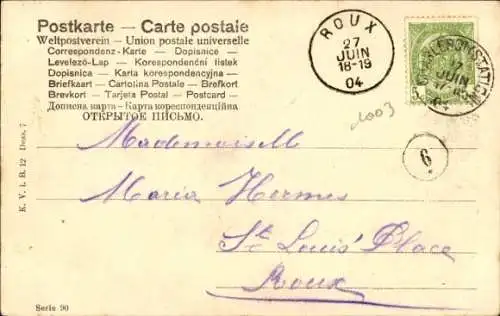 Postkarte — Carte postale
Weltpostverein – Union postale universelle
Correspondenz-Karte – Dopisnice –
Levelező-Lap – Korespondenční lístek
Dopisnica – Karta korespondencyjna –
Briefkaart – Cartolina Postale – Brefkort
Brevkort – Tarjeta Postal – Postcard –
Дописна карта – Карта кореспонденційна
ОТКРЫТОЕ ПИСЬМО.
ROUX
27
JUIN
18-19
04
27
JUIN
5
1003
6
Mademoiselle
Maria Hermes
St Louis' Place
Roux
K. V. i. B. 12 Dess. 7
Serie 90